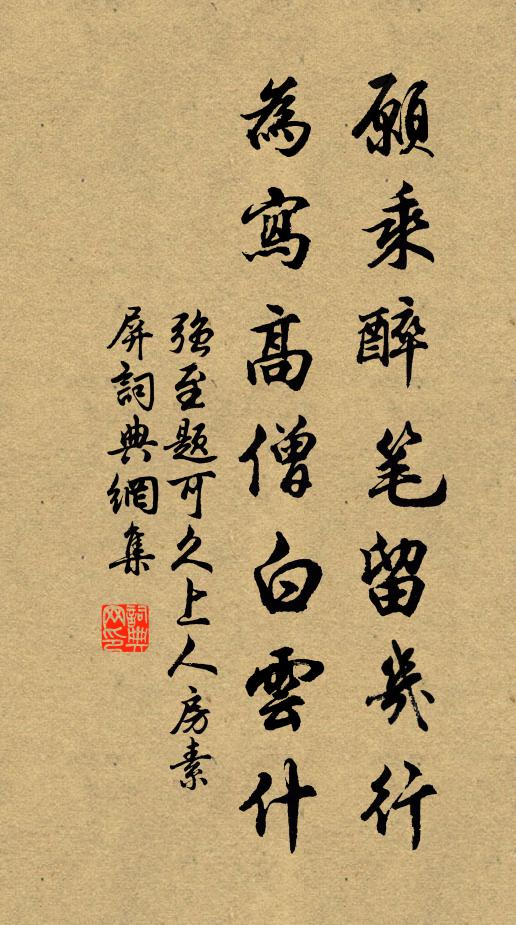 願乘醉笔留幾行
為寫高僧白雲什
強至題可久上人房素
屏詞典網集
詞典
网印